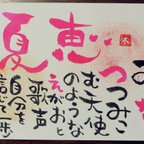 あ
つつみこ
む天使
のような
恵
えがおと
歌声
夏
自分を
信じて一歩